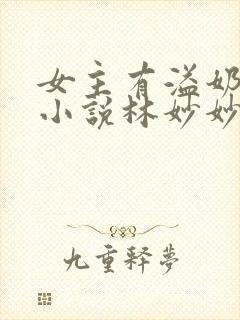 女主有溢奶
小说林妙妙
九重释梦